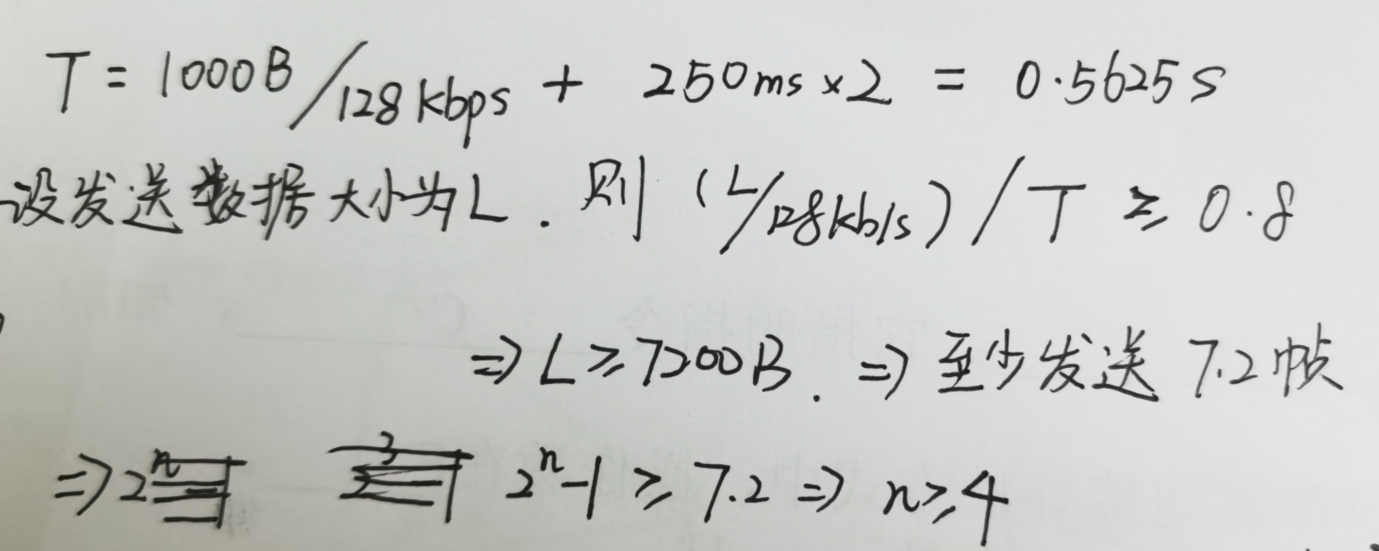 T = 1000B/128kbps + 250ms×2 = 0.5625s
设发送数据大小为L. 则 (L/128kb/s)/T ≥ 0.8
⇒ L ≥ 7200B. ⇒ 至少发送 7.2帧
⇒ 2ⁿ-1 ≥ 7.2 ⇒ n ≥ 4